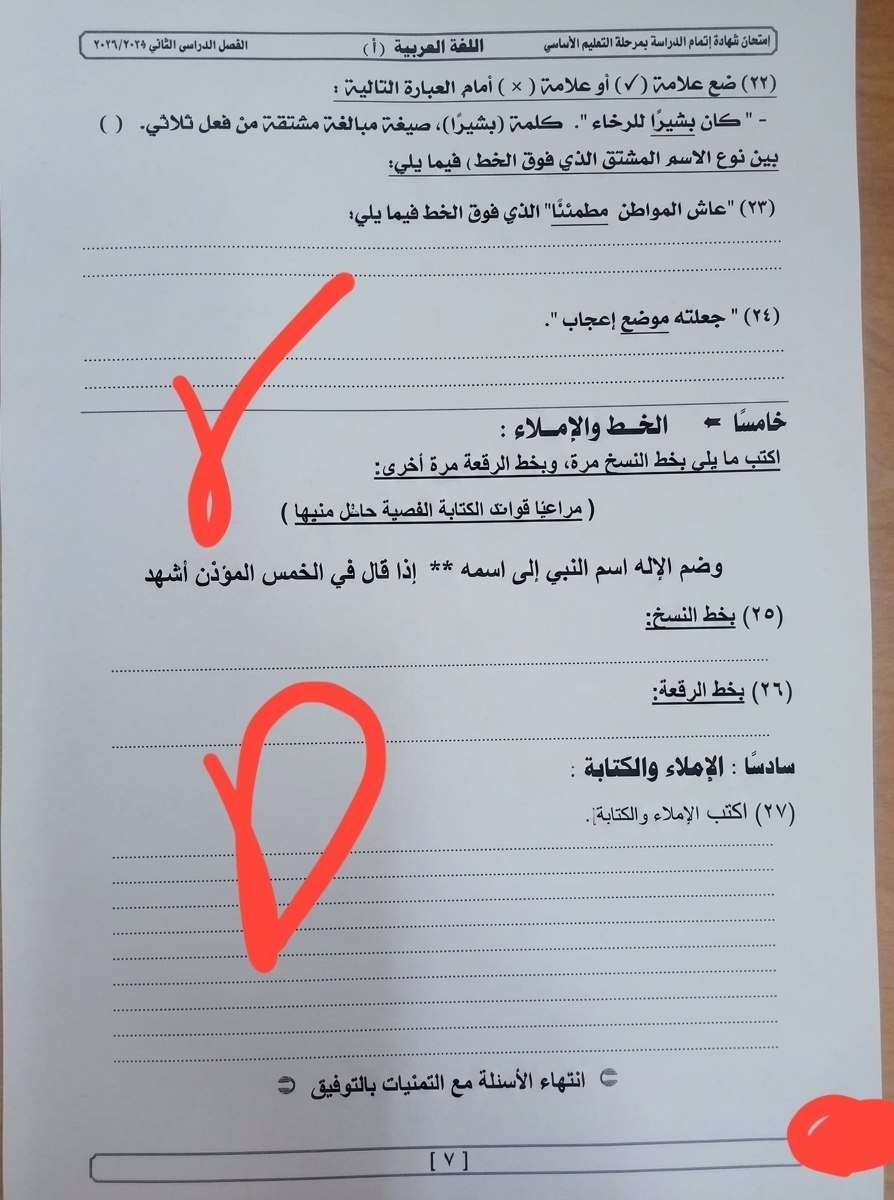 إمتحان شهادة إتمام الدراسة بمرحلة التعليم الأساسي اللغة العربية (أ) الفصل الدراسى الثاني ٢٠٢٦/٢٠٢٥
(٢٢) ضع علامة (✓) أو علامة (×) أمام العبارة التالية :
- "كان بشيرًا للرخاء". كلمة (بشيرًا)، صيغة مبالغة مشتقة من فعل ثلاثي. ( )
بين نوع الاسم المشتق الذي فوق الخط) فيما يلي:
(٢٣) "عاش المواطن مطمئنًا" الذي فوق الخط فيما يلي:
(٢٤) "جعلته موضع إعجاب".
خامسًا الخـط والإمـلاء :
اكتب ما يلي بخط النسخ مرة، وبخط الرقعة مرة أخرى:
( مراعيًا الكتابة )
وضم الإله اسم النبي إلى اسمه ** إذا قال في الخمس المؤذن أشهد
(٢٥) بخط النسخ:
(٢٦) بخط الرقعة:
سادسًا : الإملاء والكتابة :
(٢٧) اكتب الإملاء والكتابة.
انتهاء الأسئلة مع التمنيات بالتوفيق
[ ٧ ]